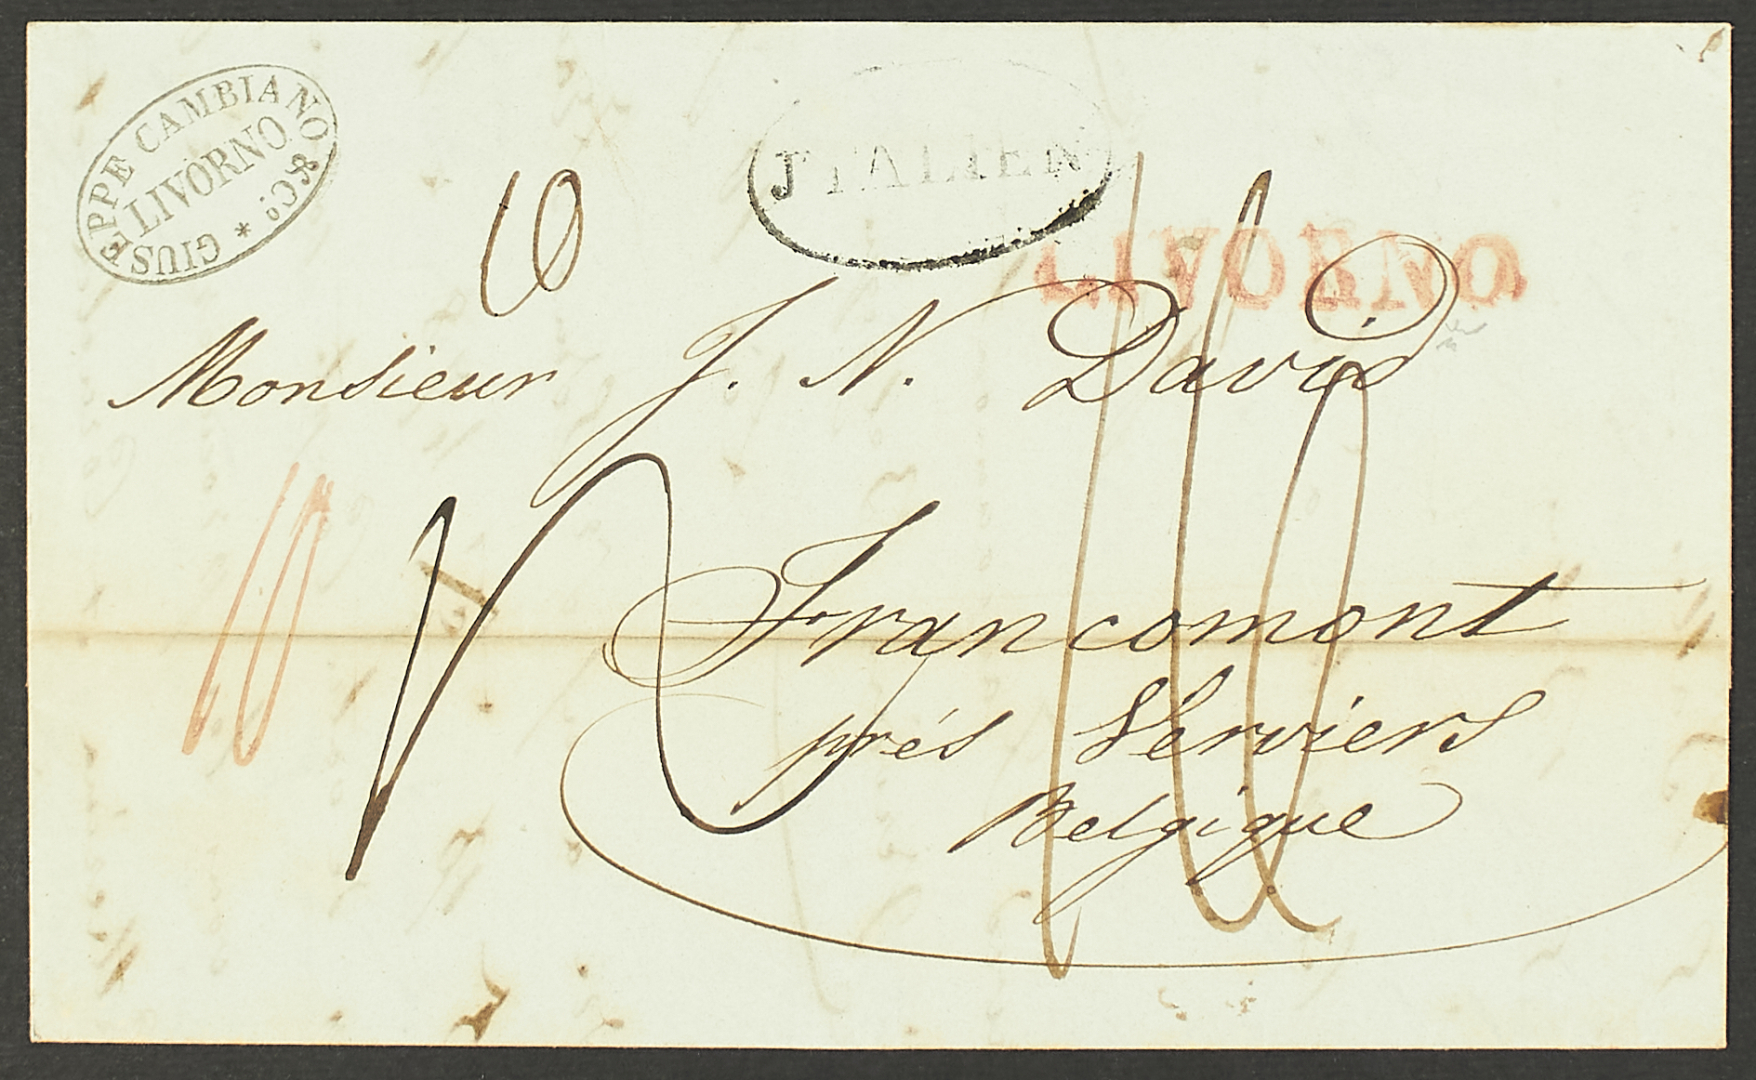 GIUSEPPE CAMBIANO & Cº. *
LIVORNO
JTALIEN
LIVORNO
10
Monsieur J. N. David
10
Francomont
prés Verviers
Belgique